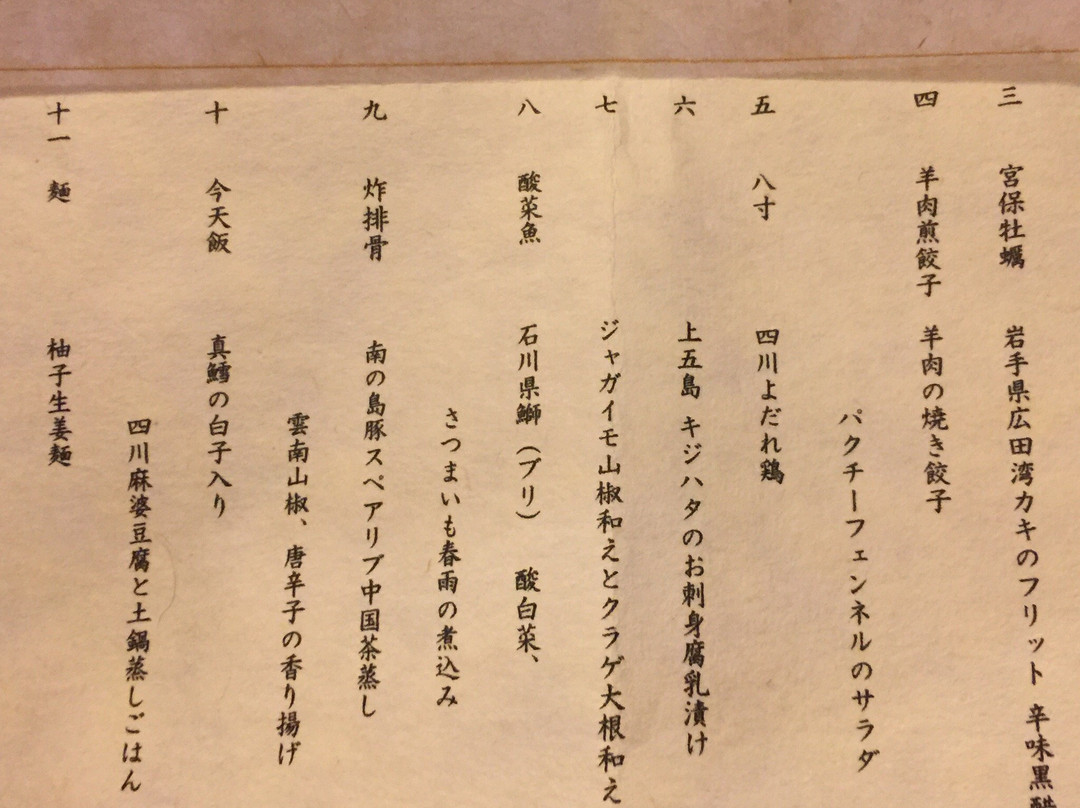 三 宮保牡蠣 岩手県広田湾カキのフリット 辛味黒酢
四 羊肉煎餃子 羊肉の焼き餃子
パクチーフェンネルのサラダ
五 八寸 四川よだれ鶏
六 上五島 キジハタのお刺身腐乳漬け
七 ジャガイモ山椒和えとクラゲ大根和え
八 酸菜魚 石川県鰤(ブリ) 酸白菜、
さつまいも春雨の煮込み
九 炸排骨 南の島豚スペアリブ中国茶蒸し
雲南山椒、唐辛子の香り揚げ
十 今天飯 真鱈の白子入り
四川麻婆豆腐と土鍋蒸しごはん
十一 麺 柚子生姜麺